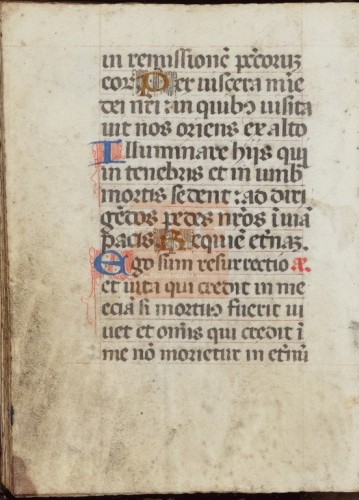 in remissionē pctoruȝ
eoꝝ Per uiscera mīe
dei nr̄i : in quibꝰ uisita
uit nos oriens ex alto
Illuminare hijs qui
in tenebris et in umb
mortis sedent : ad diri
gēdos pedes nr̄os ī uiā
pacis Requiē etnaȝ.
Ego sum resurrectio æ.
et uita qui credit in me
eciā si mortuꝰ fuerit ui
uet et om̄is qui credit ī
me nō morietur in etnū